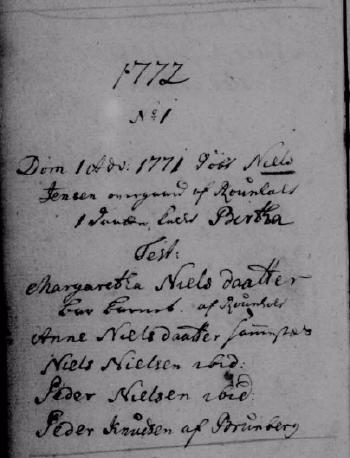 1772
No 1
Dom 1 Adv: 1771 døbt Niels
Jensen overgaard af Rounholt
1 Datter, kaldt Birtha
Test:
Margaretha Niels daatter
bar barnet. af Rounholt
Anne Nielsdaatter sammestæds
Niels Nielsen ibid:
Peder Nielsen ibid:
Peder Knudsen af Brunberg